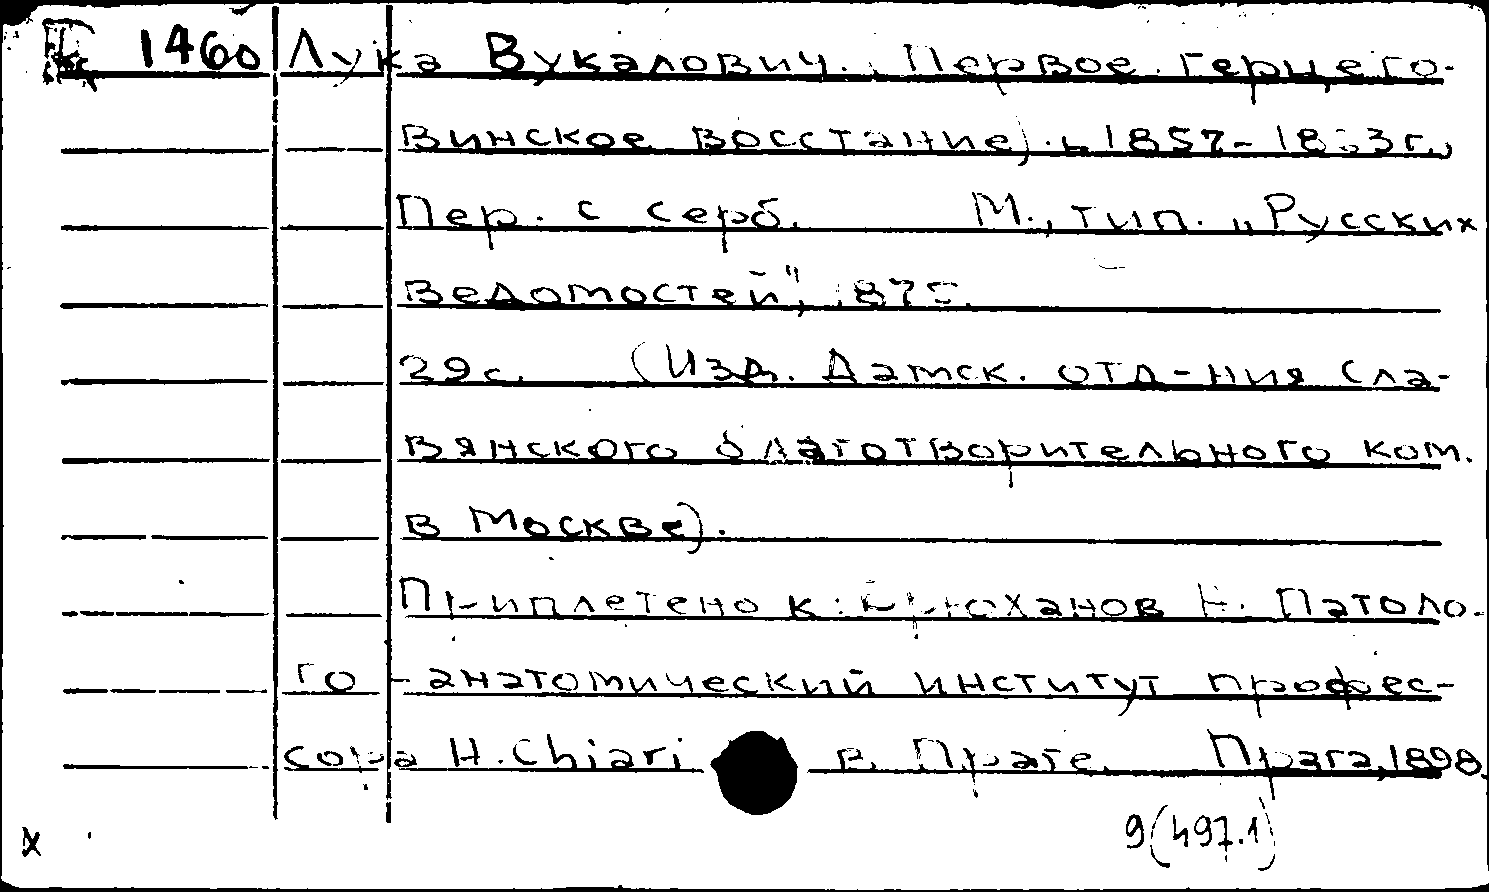 1460 Лука Вукалович. Первое герцего-
винское восстание, 1857-1863г.,
Пер. с серб. М., тип. „Русских
Ведомостей", 187
29с. (Изд. Дамск. отд-ния сла-
вянского благотворительного ком.
в Москве).
Приплетено к: Н. Патоло-
го-анатомический институт профес-
сора H. Chiari в Праге. Прага, 1898.
9(497.1)
x